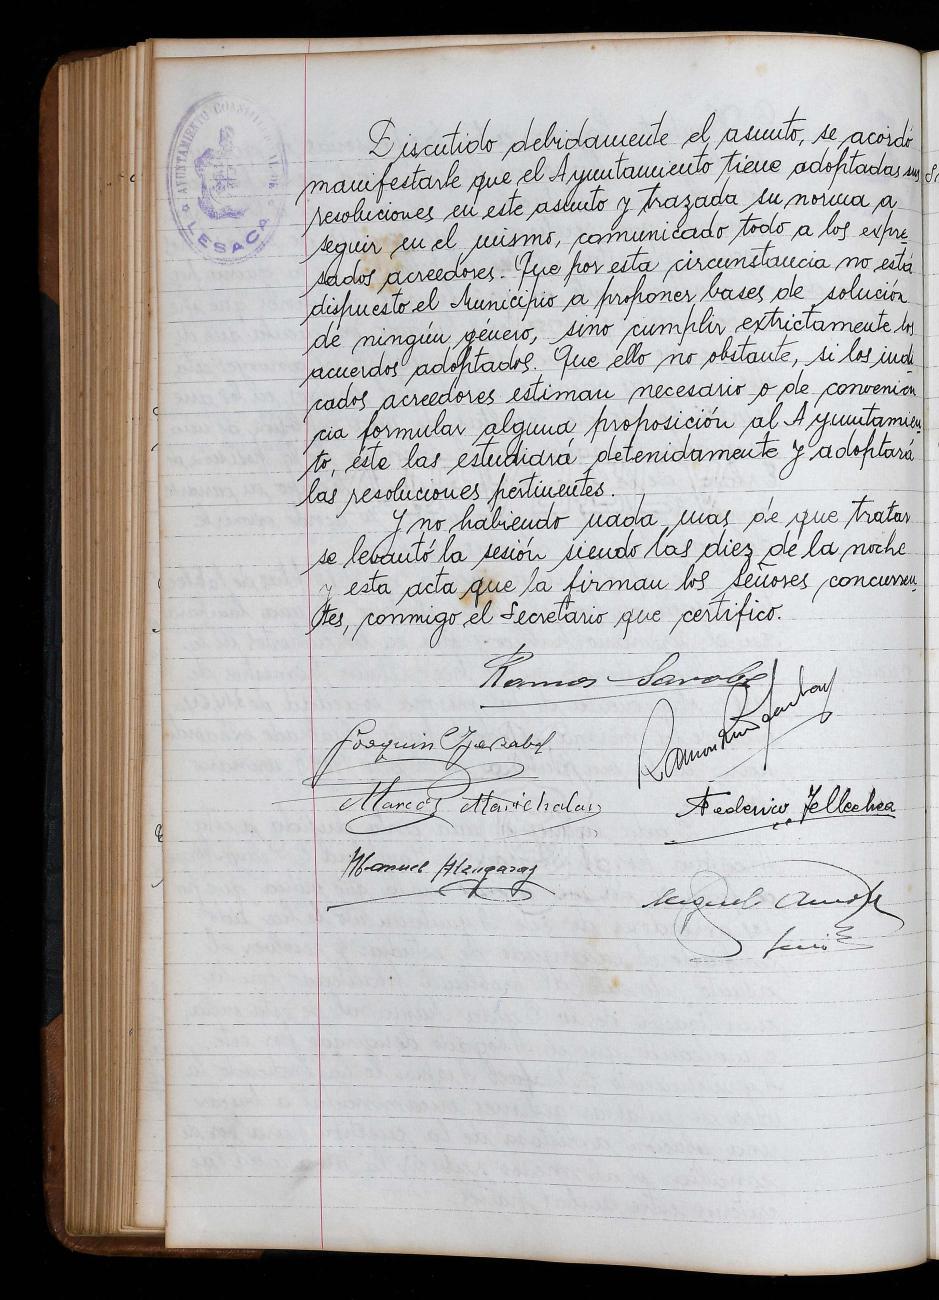 AYUNTAMIENTO CONSTITUCIONAL DE
LESACA
Discutido debidamente el asunto, se acordó
manifestarle que el Ayuntamiento tiene adoptadas sus
resoluciones en este asunto y trazada su norma a
seguir en el mismo, comunicado todo a los expre-
sados acreedores. Que por esta circunstancia no está
dispuesto el Municipio a proponer bases de solución
de ningún género, sino cumplir extrictamente los
acuerdos adoptados. Que ello no obstante, si los indi
cados acreedores estiman necesario o de convenien
cia formular alguna proposición al Ayuntamien-
to, éste las estudidrá detenidamente y adoptará
las resoluciones pertinentes.
Y no habiendo nada mas de que tratar
se levantó la sesión siendo las diez de la noche
y esta acta que la firman los señores concurren-
tes, conmigo el Secretario que certifico.
Ramos Sarobe
Joaquin Yerobel
Ramón
Marcos Marichalar
Federico Tellechea
Manuel Alzugaray
Miguel